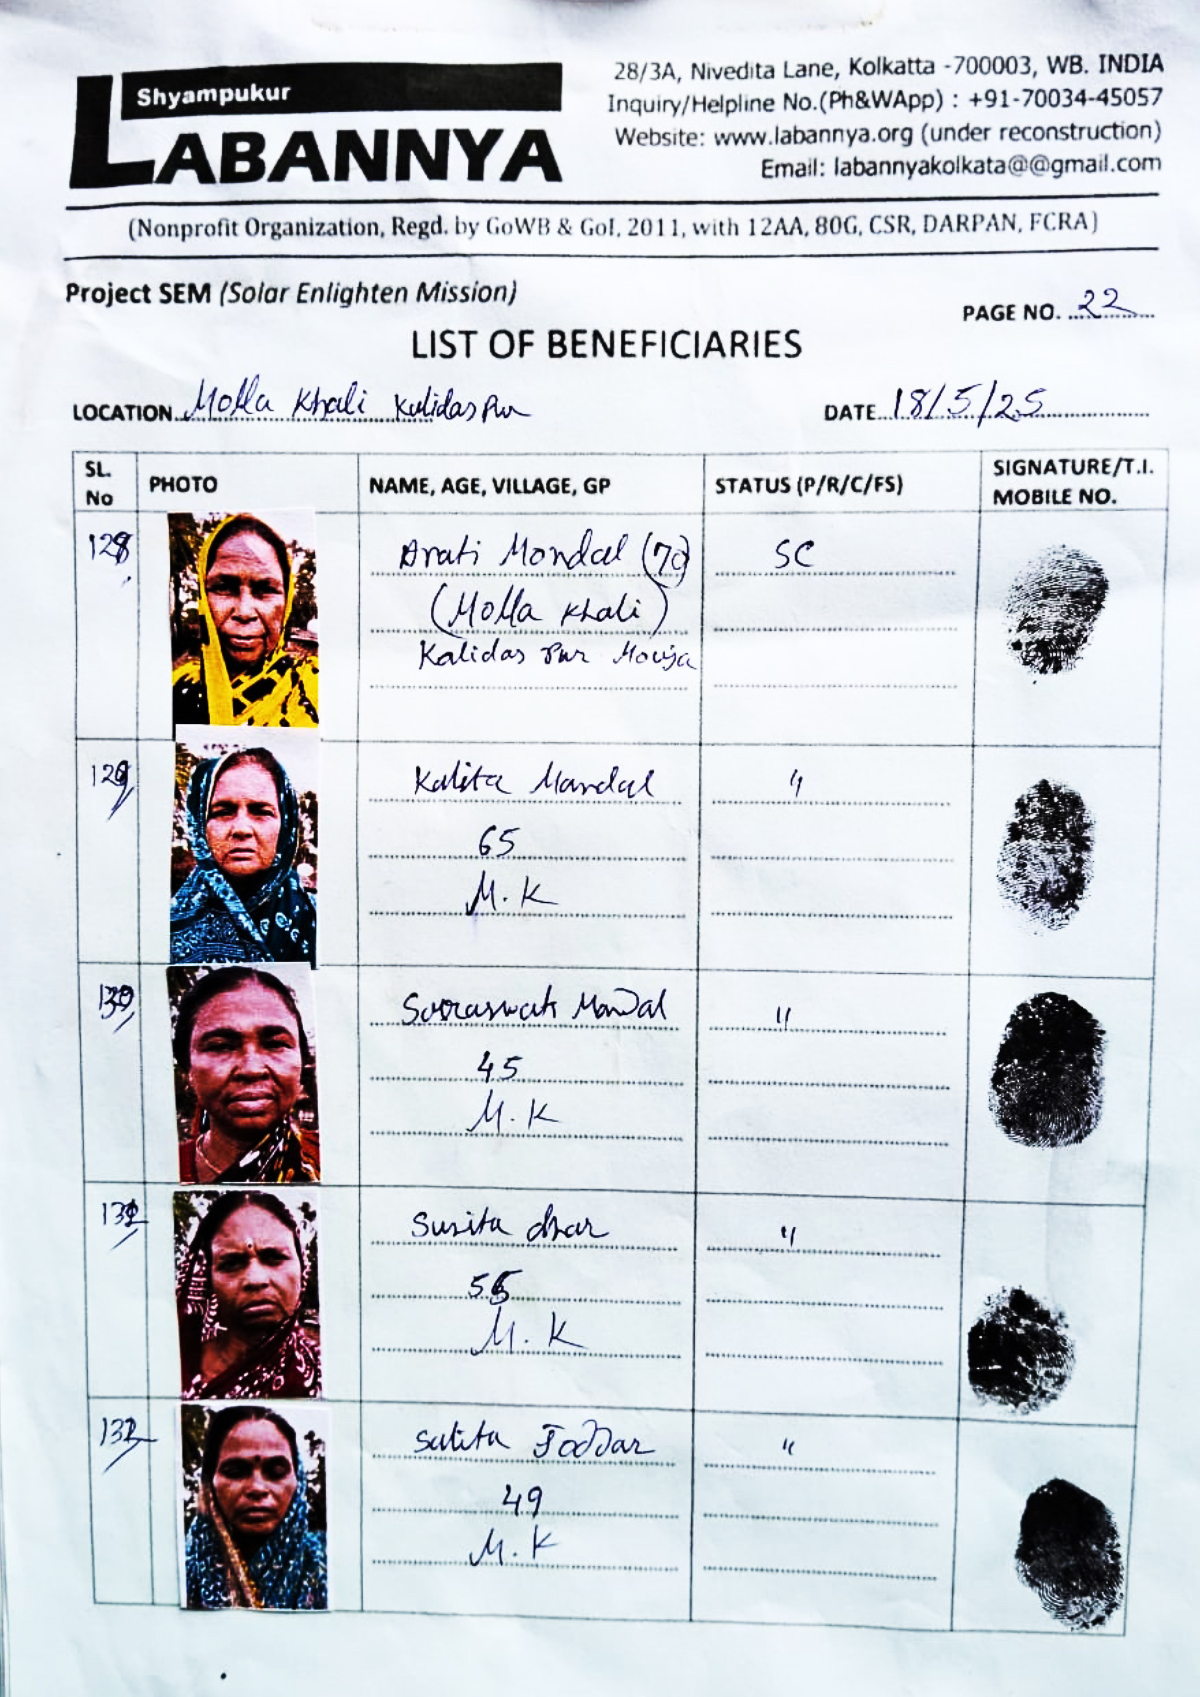 Shyampukur
LABANNYA
28/3A, Nivedita Lane, Kolkatta -700003, WB. INDIA
Inquiry/Helpline No.(Ph&WApp) : +91-70034-45057
Website: www.labannya.org (under reconstruction)
Email: labannyakolkata@@gmail.com
(Nonprofit Organization, Regd. by GoWB & GoI, 2011, with 12AA, 80G, CSR, DARPAN, FCRA)
Project SEM (Solar Enlighten Mission)
PAGE NO. 22
LIST OF BENEFICIARIES
LOCATION Molla Khali Kalidas Pur
DATE 18/5/25
SL. No PHOTO NAME, AGE, VILLAGE, GP STATUS (P/R/C/FS) SIGNATURE/T.I. MOBILE NO.
128 Arati Mondal (70) SC
(Molla Khali)
Kalidas Pur Mouja
129 Kalita Mandal "
65
M.K
130 Mondal "
45
M.K
131 "
M.K
132 "
49
M.K